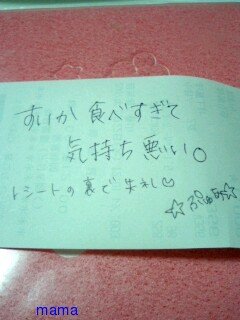 すいか 食べすぎて
気持ち悪い。
レシートの裏で失礼
mama